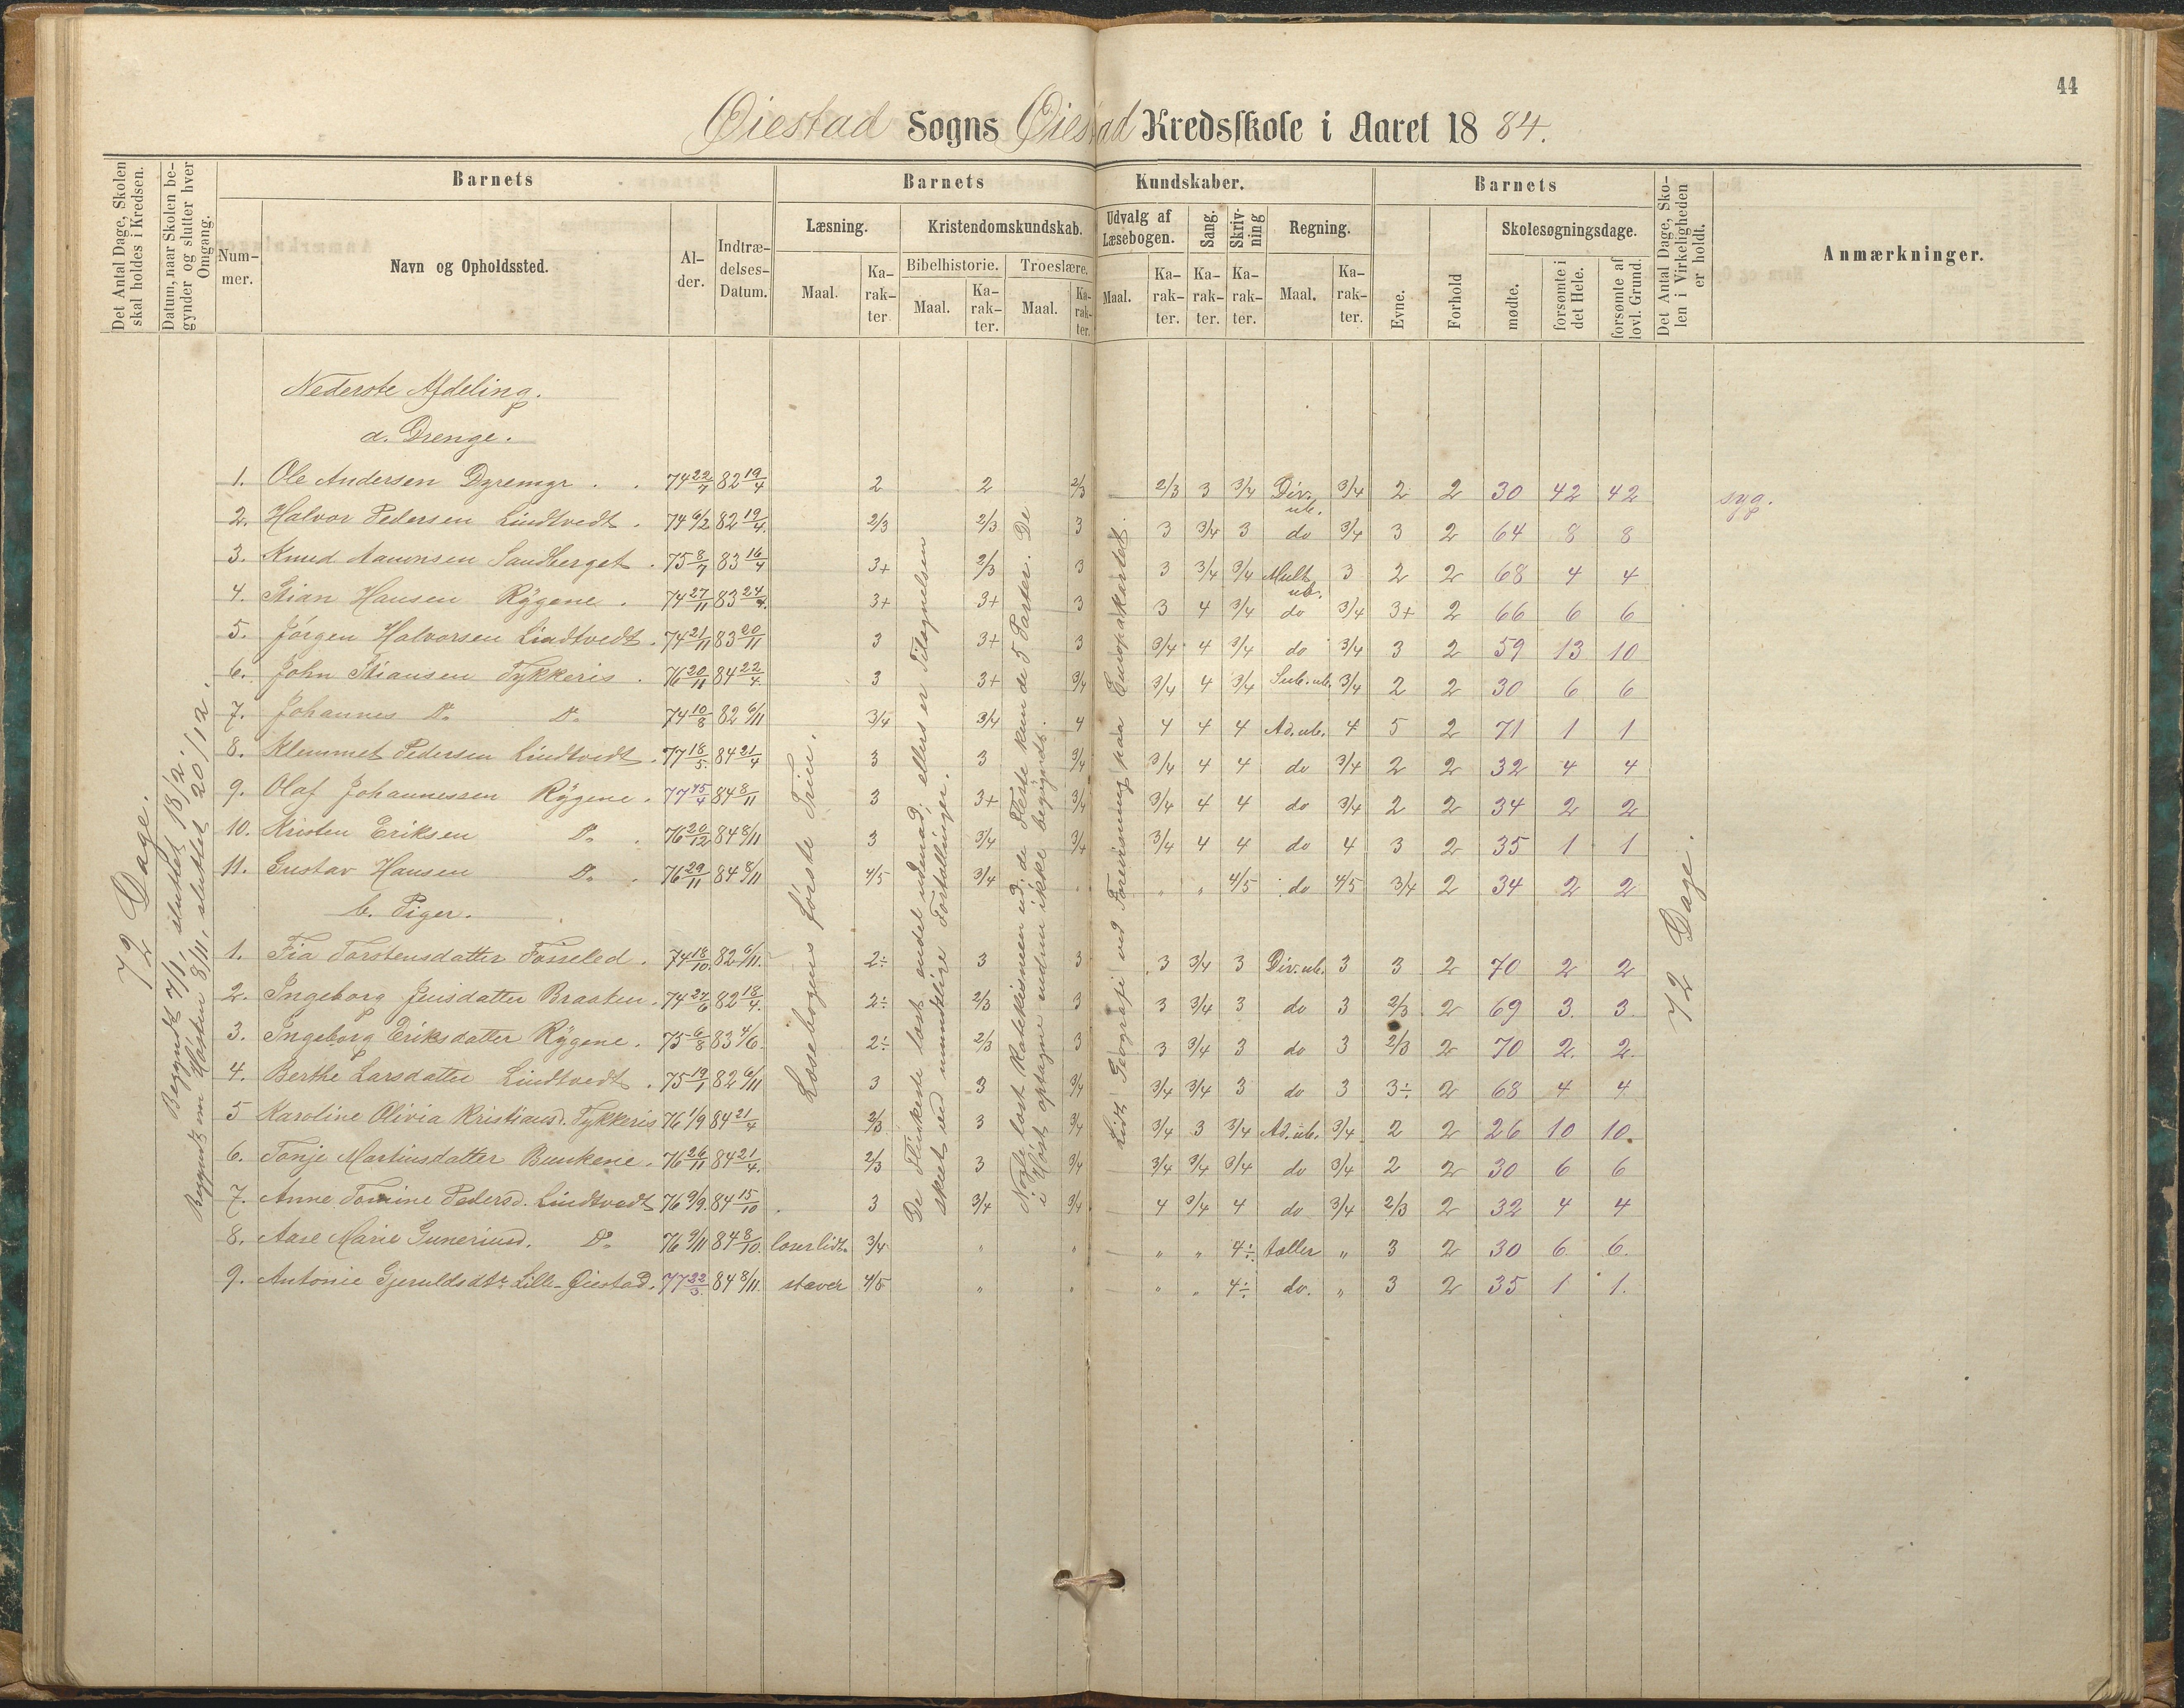 44
Øiestad Sogns Øiestad Kredsskole i Aaret 18 84.
Det Antal Dage, Skolen skal holdes i Kredsen.
Datum, naar Skolen begynder og slutter hver Omgang.
Barnets
Nummer.
Navn og Opholdssted.
Alder.
Indtrædelses-Datum.
Barnets Kundskaber.
Læsning.
Maal.
Karakter
Kristendomskundskab.
Bibelhistorie.
Maal.
Karakter.
Troeslære.
Maal.
Karakter.
Udvalg af Læsebogen.
Maal.
Karakter.
Sang.
Karakter.
Skrivning
Karakter.
Regning.
Maal.
Karakter.
Barnets
Evne.
Forhold
Skolesøgningsdage.
mødte.
forsømte i det Hele.
forsømte af lovl. Grund.
Det Antal Dage, Skolen i Virkeligheden er holdt.
Anmærkninger.
72 Dage.
Begyndt 7/1, sluttet 18/2.
Begyndt om Høsten 8/11, sluttet 20/12.
Læsebogens første Trin.
De Flinkeste læst endel udenad, ellers er Tilegnelsen
skeet ved mundtlige Fortællinger.
Nogle læst Katekismen ud, de Fleste kun de 5 Parter. De
i Høst optagne endnu ikke begyndt.
Lidt Geografi ved Foreviisning paa Europakartet.
72 Dage.
Nederste Afdeling.
a. Drenge.
1. Ole Andersen Dyremyr . . 74 22/7 82 19/4 2 2 2/3 2/3 3 3/4 Div. ub. 3/4 2 2 30 42 42 syg.
2. Halvor Pedersen Lindtvedt . 74 6/2 82 19/4 2/3 2/3 3 3 3/4 3 do 3/4 3 2 64 8 8
3. Knud Aanonsen Sandberget . 75 8/7 83 16/4 3+ 2/3 3 3 3/4 3/4 Mult. ub. 3 2 2 68 4 4
4. Stian Hansen Rygene . 74 27/11 83 24/4 3+ 3+ 3 3 4 3/4 do 3/4 3+ 2 66 6 6
5. Jørgen Halvorsen Lindtvedt . 74 21/11 83 20/11 3 3+ 3 3/4 4 3/4 do 3/4 3 2 59 13 10
6. John Stiansen Tykkeris . 76 20/11 84 22/4 3 3+ 3/4 3/4 4 3/4 Sub. ub. 3/4 2 2 30 6 6
7. Johannes Do Do 74 10/8 82 6/11 3/4 3/4 4 4 4 4 Ad. ub. 4 5 2 71 1 1
8. Klemmet Pedersen Lindtvedt . 77 18/5 84 21/4 3 3 3/4 3/4 4 4 do 3/4 2 2 32 4 4
9. Olaf Johannessen Rygene . 77 15/4 84 8/11 3 3+ 3/4 3/4 4 4 do 3/4 2 2 34 2 2
10. Kristen Eriksen Do . 76 20/12 84 8/11 3 3/4 3/4 3/4 4 4 do 4 3 2 35 1 1
11. Gustav Hansen Do . 76 29/11 84 8/11 4/5 3/4 " " " 4/5 do 4/5 3/4 2 34 2 2
b. Piger.
1. Fia Torstensdatter Fosseled . 74 18/10 82 6/11 2÷ 3 3 3 3/4 3 Div. ub. 3 3 2 70 2 2
2. Ingeborg Jensdatter Braaten . 74 24/6 82 18/4 2÷ 2/3 3 3 3/4 3 do 3 2/3 2 69 3. 3.
3. Ingeborg Eriksdatter Rygene . 75 6/8 83 4/6 2÷ 2/3 3 3 3/4 3 do 3 2/3 2 70 2. 2.
4. Berthe Larsdatter Lindtvedt . 75 19/1 82 6/11 3 3 3/4 3/4 3/4 3 do 3 3÷ 2 68 4 4
5 Karoline Olivia Kristiansd. Tykkeris 76 1/9 84 21/4 2/3 3 3/4 3/4 3 3/4 Ad. ub. 3/4 2 2 26 10 10.
6. Tonje Martinsdatter Bunkene . 76 26/11 84 21/4 2/3 3 3/4 3/4 3/4 3/4 do 3/4 2 2 30 6 6
7. Anne Tomine Pedersd. Lindtvedt 76 9/9 84 15/10 3 3/4 3/4 4 3/4 4 do 3/4 2/3 2 32 4 4
8. Aase Marie Guneriusd. Do 76 9/11 84 8/10 læser lidt 3/4 " " " " 4÷ tæller " 3 2 30 6 6.
9. Antonie Gjeruldsdtr Lille-Øiestad. 77 22/3 84 8/11 staver 4/5 " " " " 4÷ do. " 3 2 35 1 1.